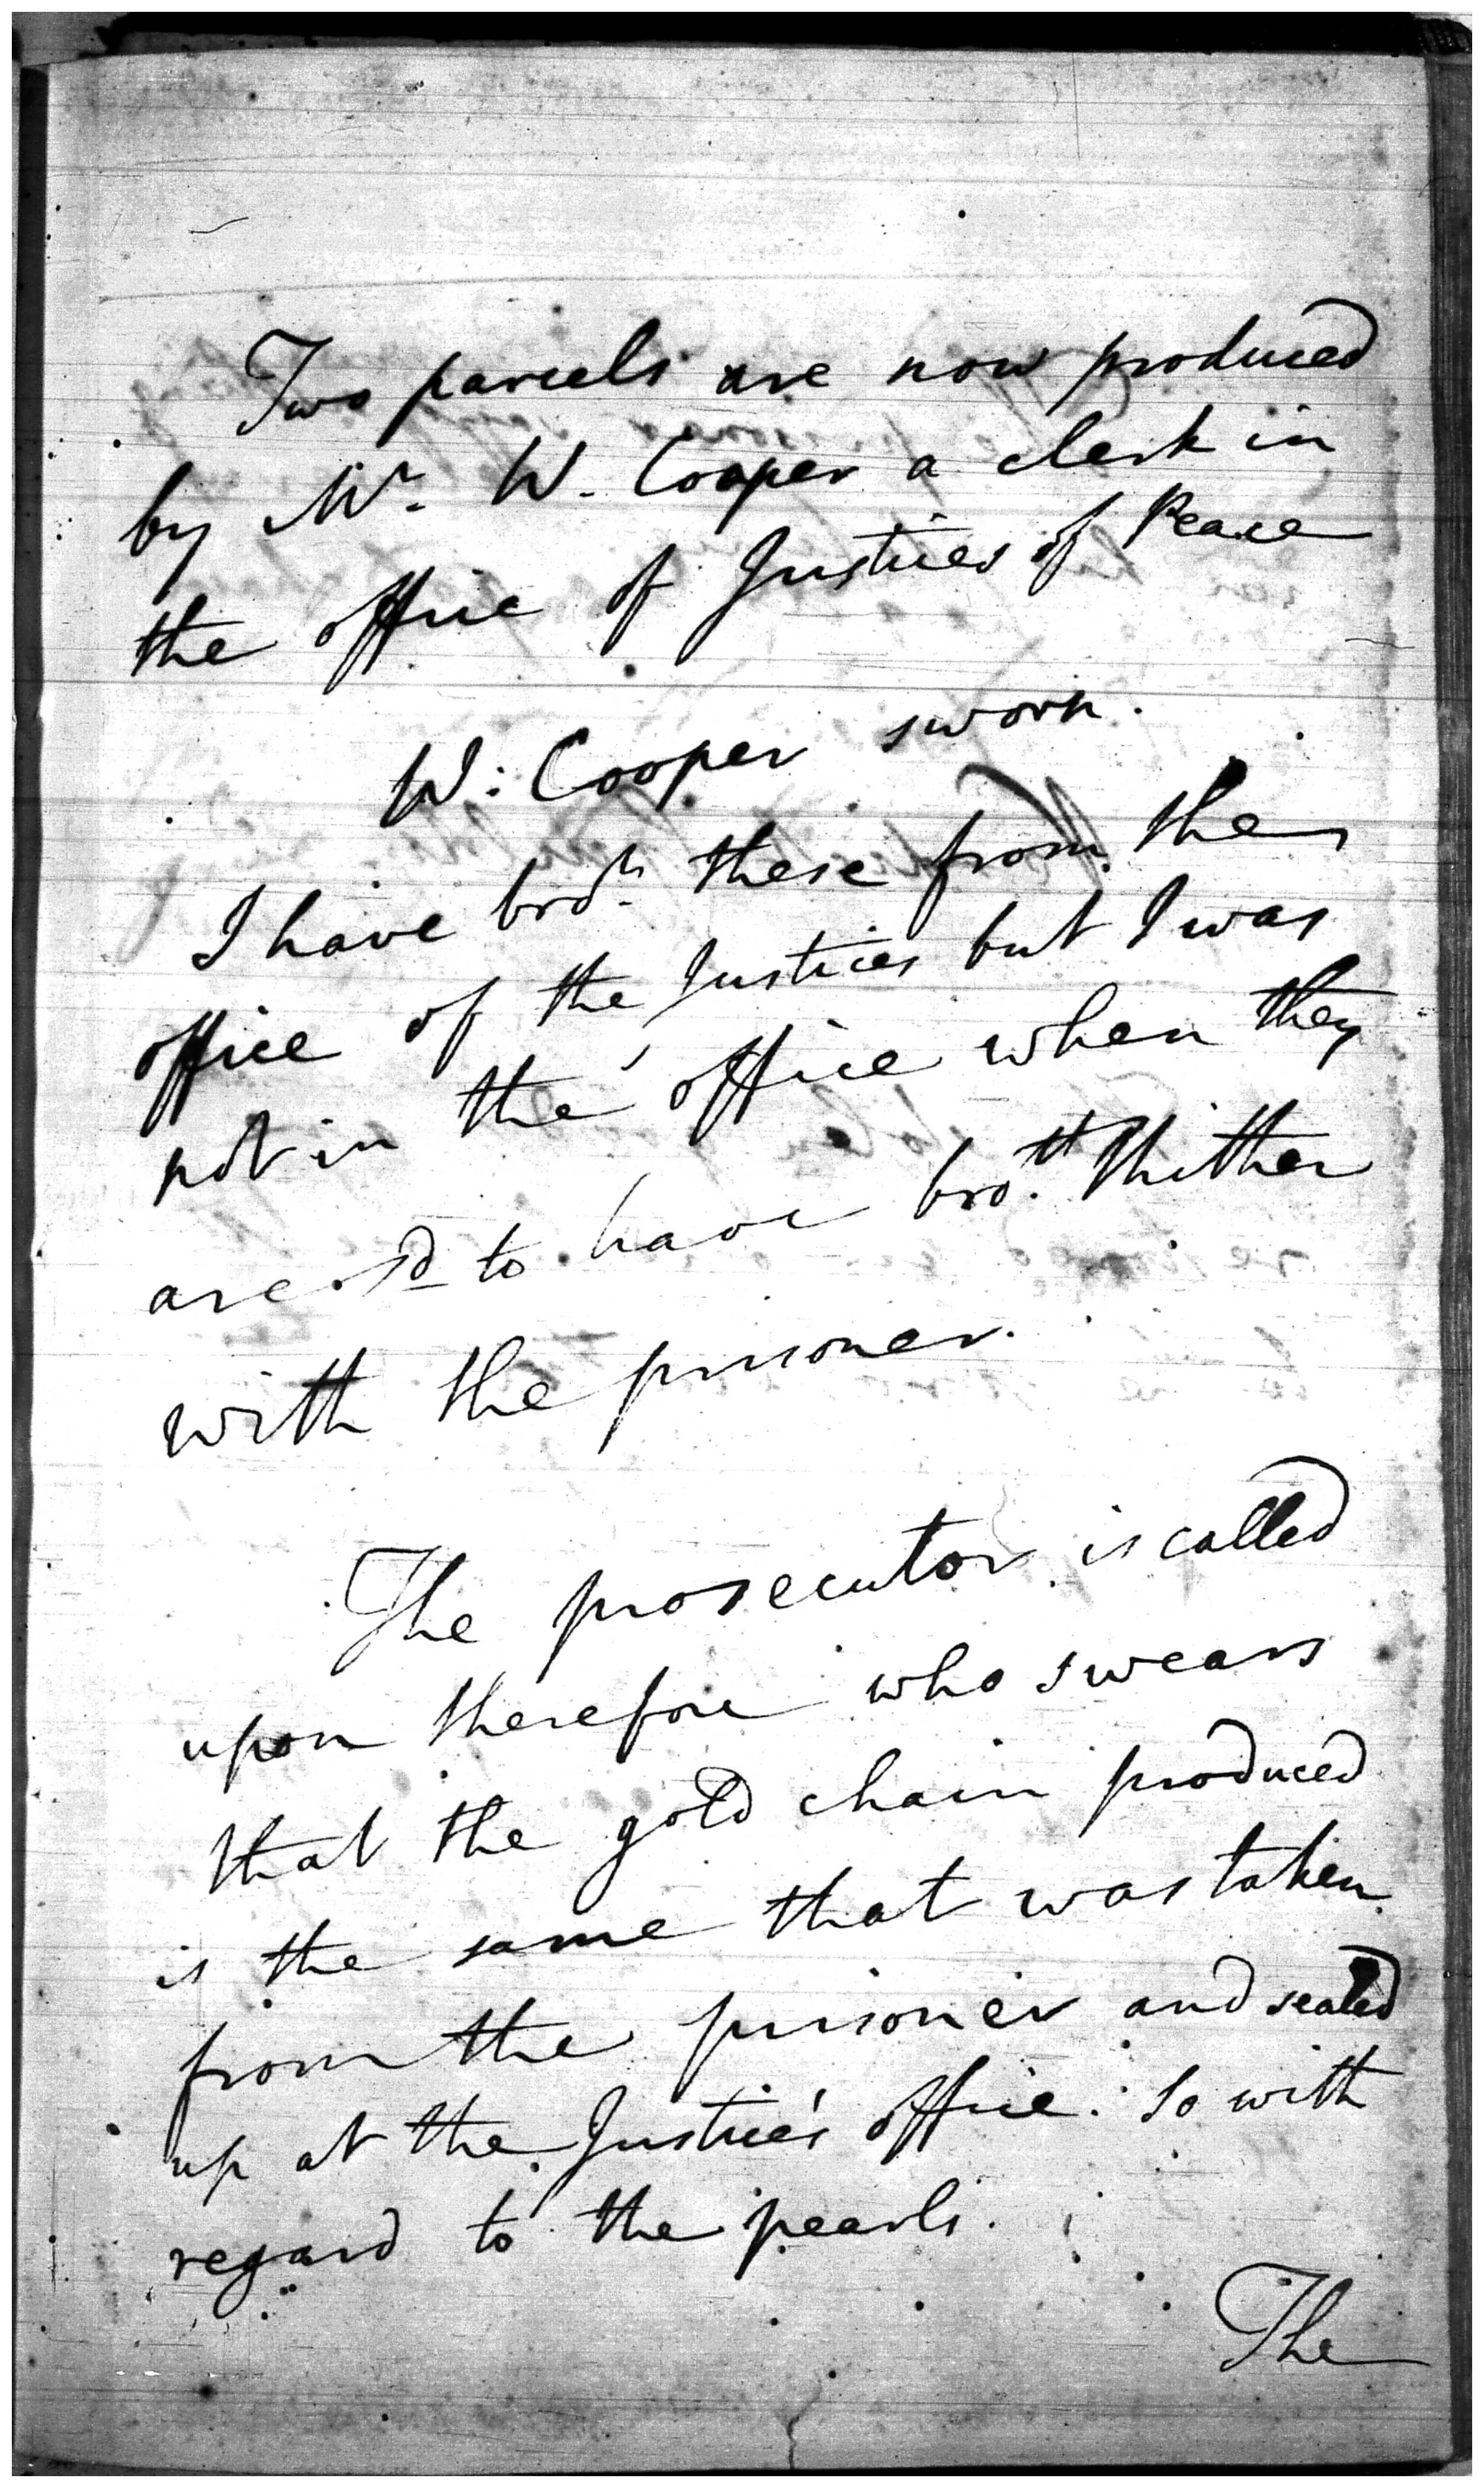 Two parcels are now produced
by Mr. W. Cooper a clerk in
the office of Justices of Peace
W: Cooper sworn.
I have brot. these from the
office of the Justices but I was
not in the office when they
are sd to have brot. thither
with the prisoner.
The prosecutor is called
upon therefore who swears
that the gold chain produced
is the same that was taken
from the prisoner and sealed
up at the Justice's office. So with
regard to the pearls.
The